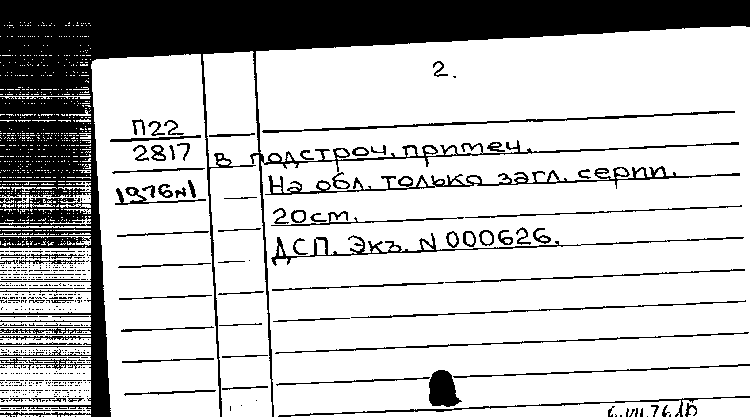 2.
П22
2817 в подстроч. примеч.
1976 N1 На обл. только загл. серии.
20см.
ДСП. Экз. N 000626.
6.VII.76